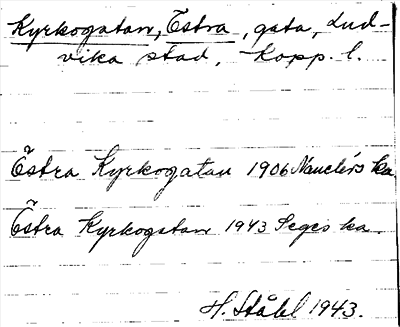 Kyrkogatan, Östra, gata, Lud-
vika stad, Kopp. l.
Östra Kyrkogatan 1906 Nauclérs ka
Östra Kyrkogatan 1943 Seges ka
H. Ståhl 1943.